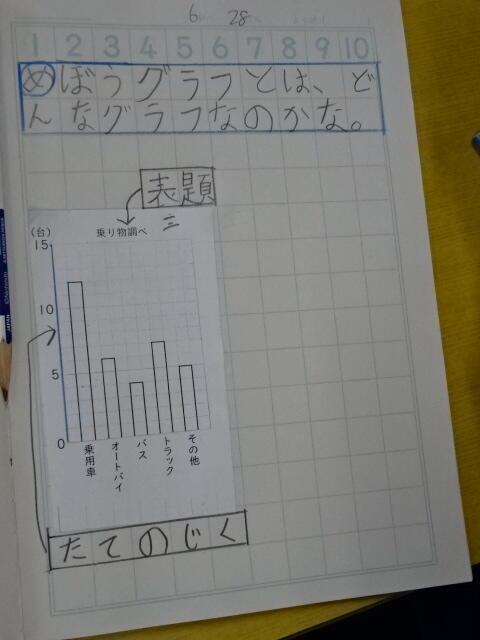 6 28
1 2 3 4 5 6 7 8 9 10
めぼうグラフとは、ど
んなグラフなのかな。
表題
(台)
乗り物調べ
15
10
5
0
乗用車
オートバイ
バス
トラック
その他
たてのじく